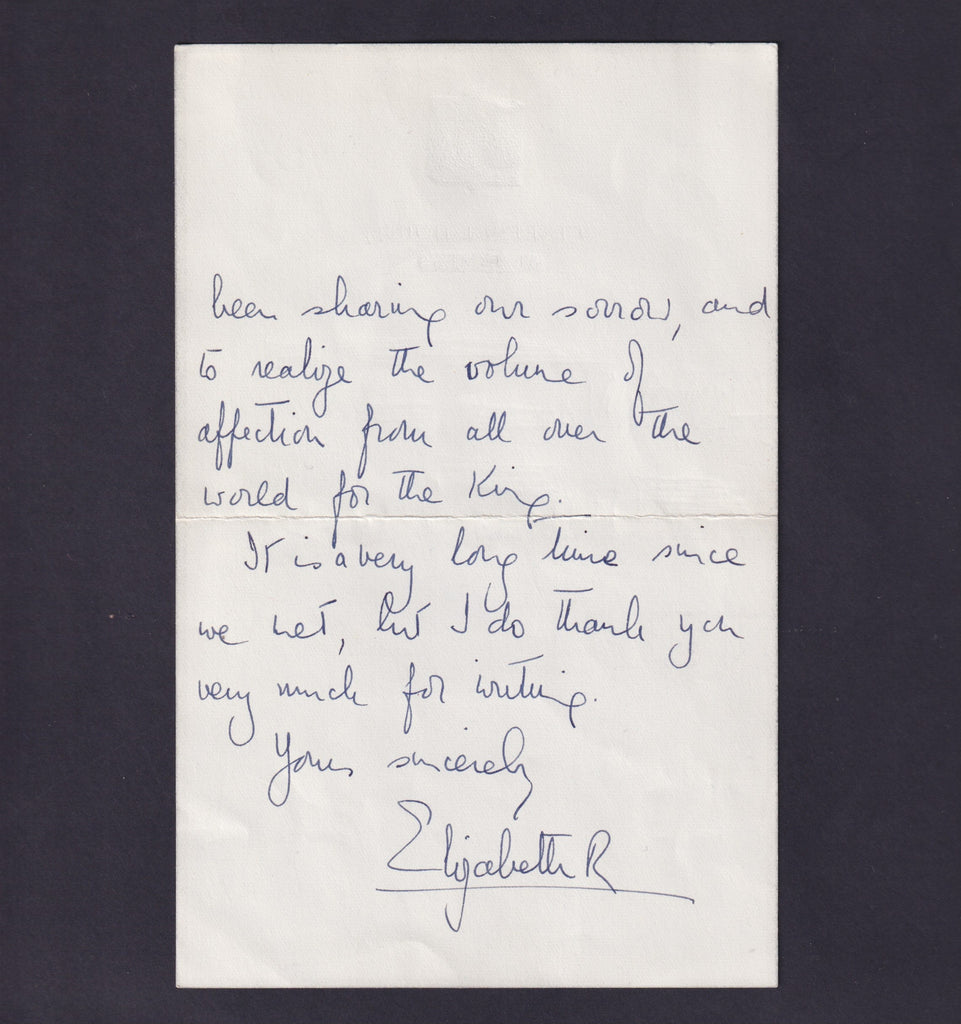 been sharing our sorrow, and
to realize the volume of
affection from all over the
world for the King.
It is a very long time since
we met, but I do thank you
very much for writing.
Yours sincerely
Elizabeth R